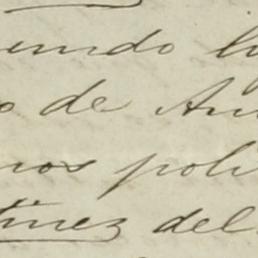 endo
o de Am
nos poli
tinez del